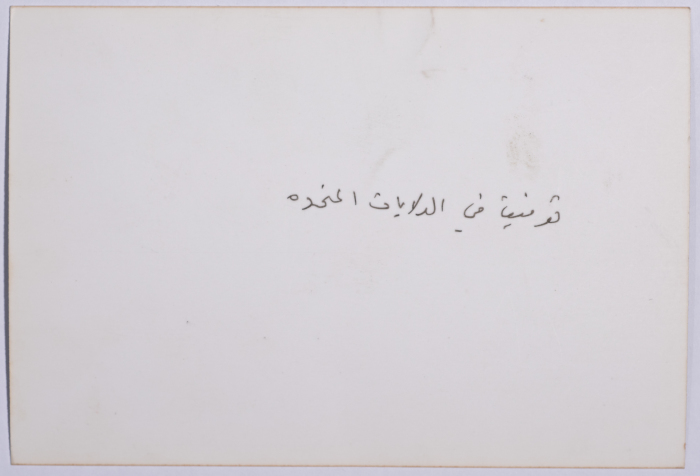 توفيق في الولايات المتحده